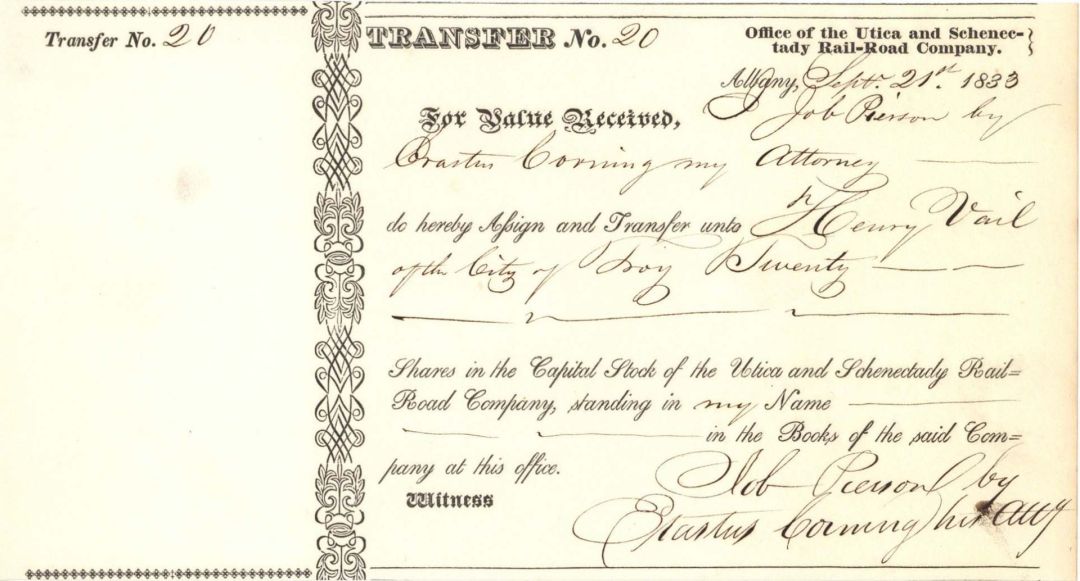 Transfer No. 20
TRANSFER No. 20
Office of the Utica and Schenec-
tady Rail-Road Company.
Albany, Sept. 21st. 1833
For Value Received, I Job Pierson by
Erastus Corning my Attorney
do hereby Assign and Transfer unto Henry Vail
of the City of Troy Twenty
Shares in the Capital Stock of the Utica and Schenectady Rail=
Road Company, standing in my Name
in the Books of the said Com=
pany at this office.
Witness
Job Pierson by
Erastus Corning his Atty